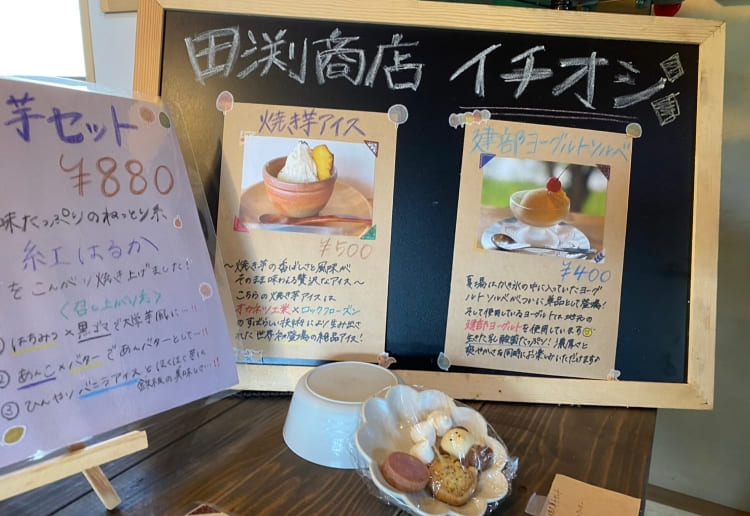 田渕商店 イチオシ
焼き芋アイス
¥500
〜焼き芋の香ばしさと風味が
そのまま味わえる贅沢なアイス〜
こちらの焼き芋アイスは
オカネツ工業×ロックフローズン
のすばらしい技術により生み出さ
れた世界初登場の絶品アイス!
建部ヨーグルトソルベ
¥400
夏場はかき氷の中に入っていたヨーグ
ルトソルベがついに単品として登場!
そして使用しているヨーグルトは地元の
建部ヨーグルトを使用しています
生きた乳酸菌たっぷり!濃厚さと
爽やかさを同時にお楽しみいただけます♪
芋セット
¥880
味たっぷりのねっとり系
紅はるか
をこんがり焼き上げました!
〈召し上がり方〉
① はちみつ×黒ゴマで大学芋風に…!!
② あんこ×バターであんバターとして…!!
③ ひんやりバニラアイスとほくほく芋に